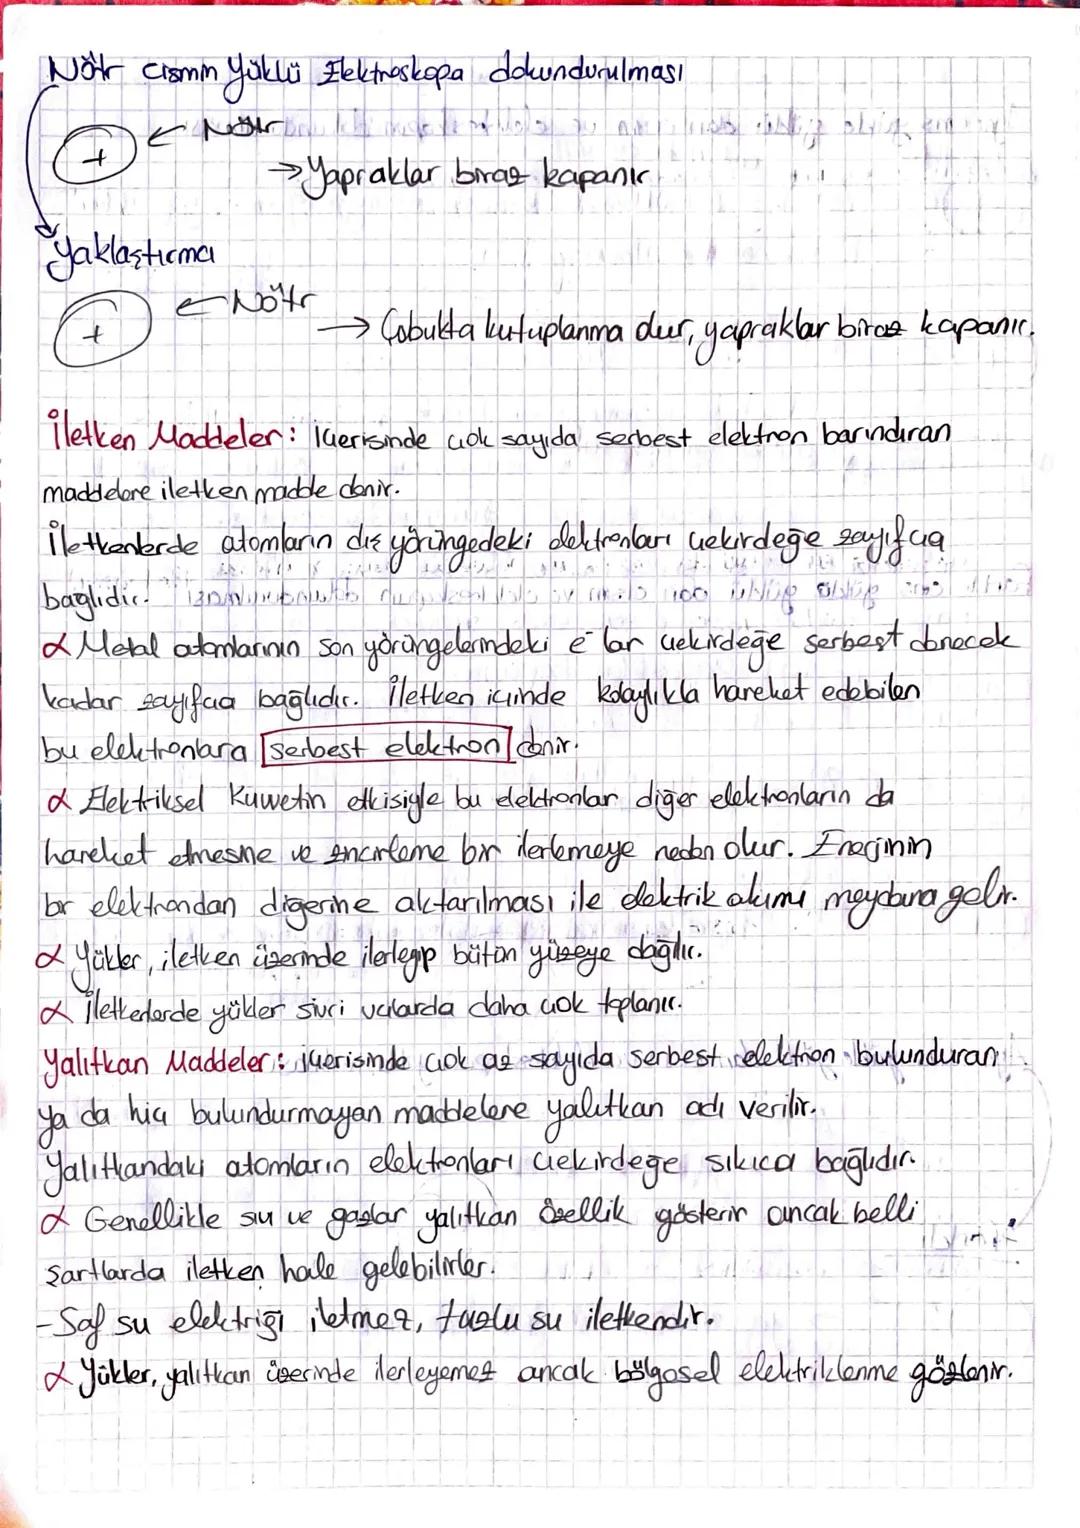 Nötr cismin Yüklü Elektroskopa dokundurulması
+ ← Nötr
→ Yapraklar biraz kapanır
Yaklaştırma
+ ← Nötr
→ Çobukta kutuplanma olur, yapraklar biraz kapanır.
İletken Maddeler: içerisinde çok sayıda serbest elektron barındıran
maddelere iletken madde denir.
İletkenlerde atomların dış yörüngedeki elektronları çekirdeğe zayıfça
bağlıdır.
α Metal atomlarının son yörüngelerindeki e⁻lar çekirdeğe serbest denecek
kadar zayıfça bağlıdır. İletken içinde kolaylıkla hareket edebilen
bu elektronlara serbest elektron denir.
α Elektriksel Kuvvetin etkisiyle bu elektronlar diğer elektronların da
hareket etmesine ve zincirleme bir ilerlemeye neden olur. Enerjinin
bir elektrondan diğerine aktarılması ile elektrik akımı meydana gelir.
α Yükler, iletken üzerinde ilerleyip bütün yüzeye dağılır.
α İletkenlerde yükler sivri uçlarda daha çok toplanır.
Yalıtkan Maddeler: içerisinde çok az sayıda serbest elektron bulunduran
ya da hiç bulundurmayan maddelere yalıtkan adı verilir.
Yalıtkandaki atomların elektronları çekirdeğe sıkıca bağlıdır.
α Genellikle sıvı ve gazlar yalıtkan özellik gösterir ancak belli
şartlarda iletken hale gelebilirler.
- Saf su elektriği iletmez, tuzlu su iletkendir.
α Yükler, yalıtkan üzerinde ilerleyemez ancak bölgesel elektriklenme gözlenir.